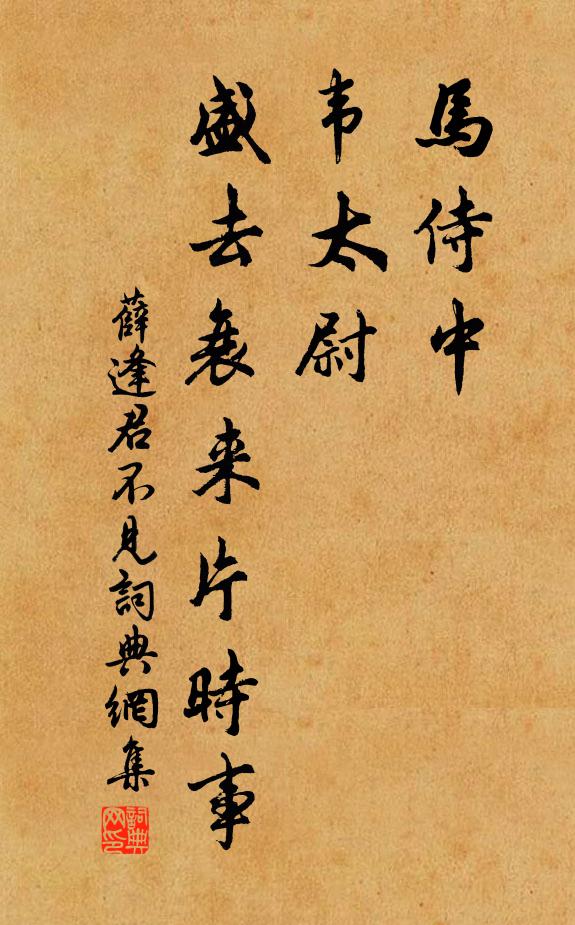 馬侍中
韦太尉
盛去衰来片時事
薛逢君不見詞典網集
詞典网印